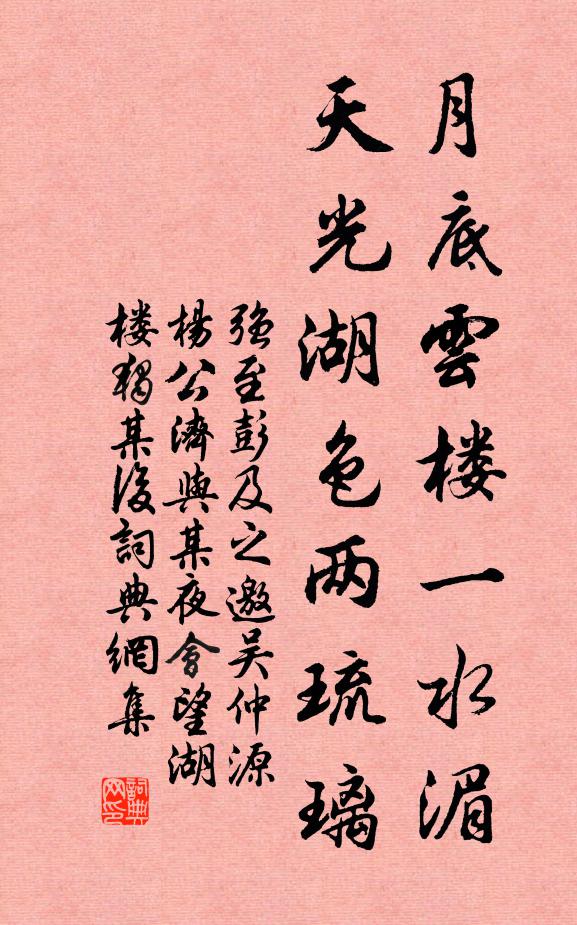 月底雲楼一水湄
天光湖色两琉璃
强至彭及之邀吴仲源
楊公濟與某夜會望湖
楼獨某後詞典網集
詞典网印